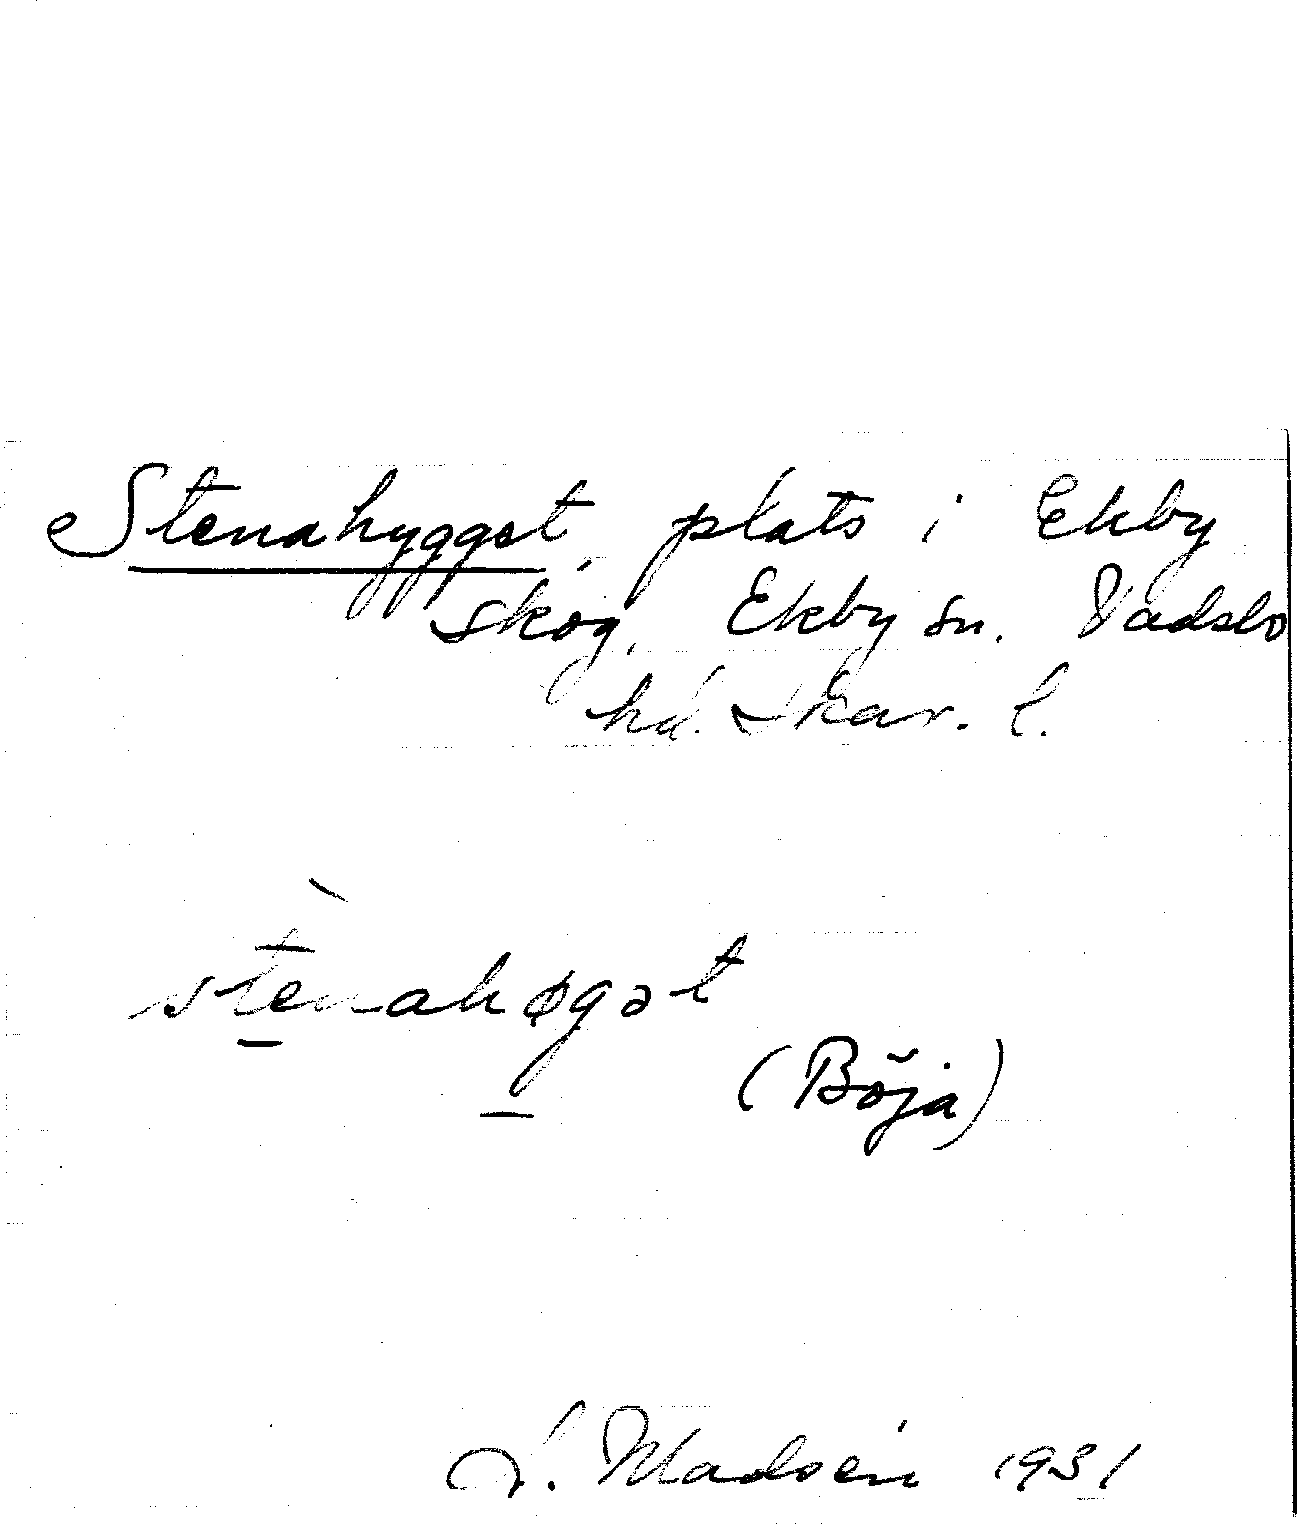 Stenahygget, plats i Ekby
skog, Ekby sn. Vadsbo
hd. Skar. l.
stènahøgət
(Böja)
S. Madsén 1931